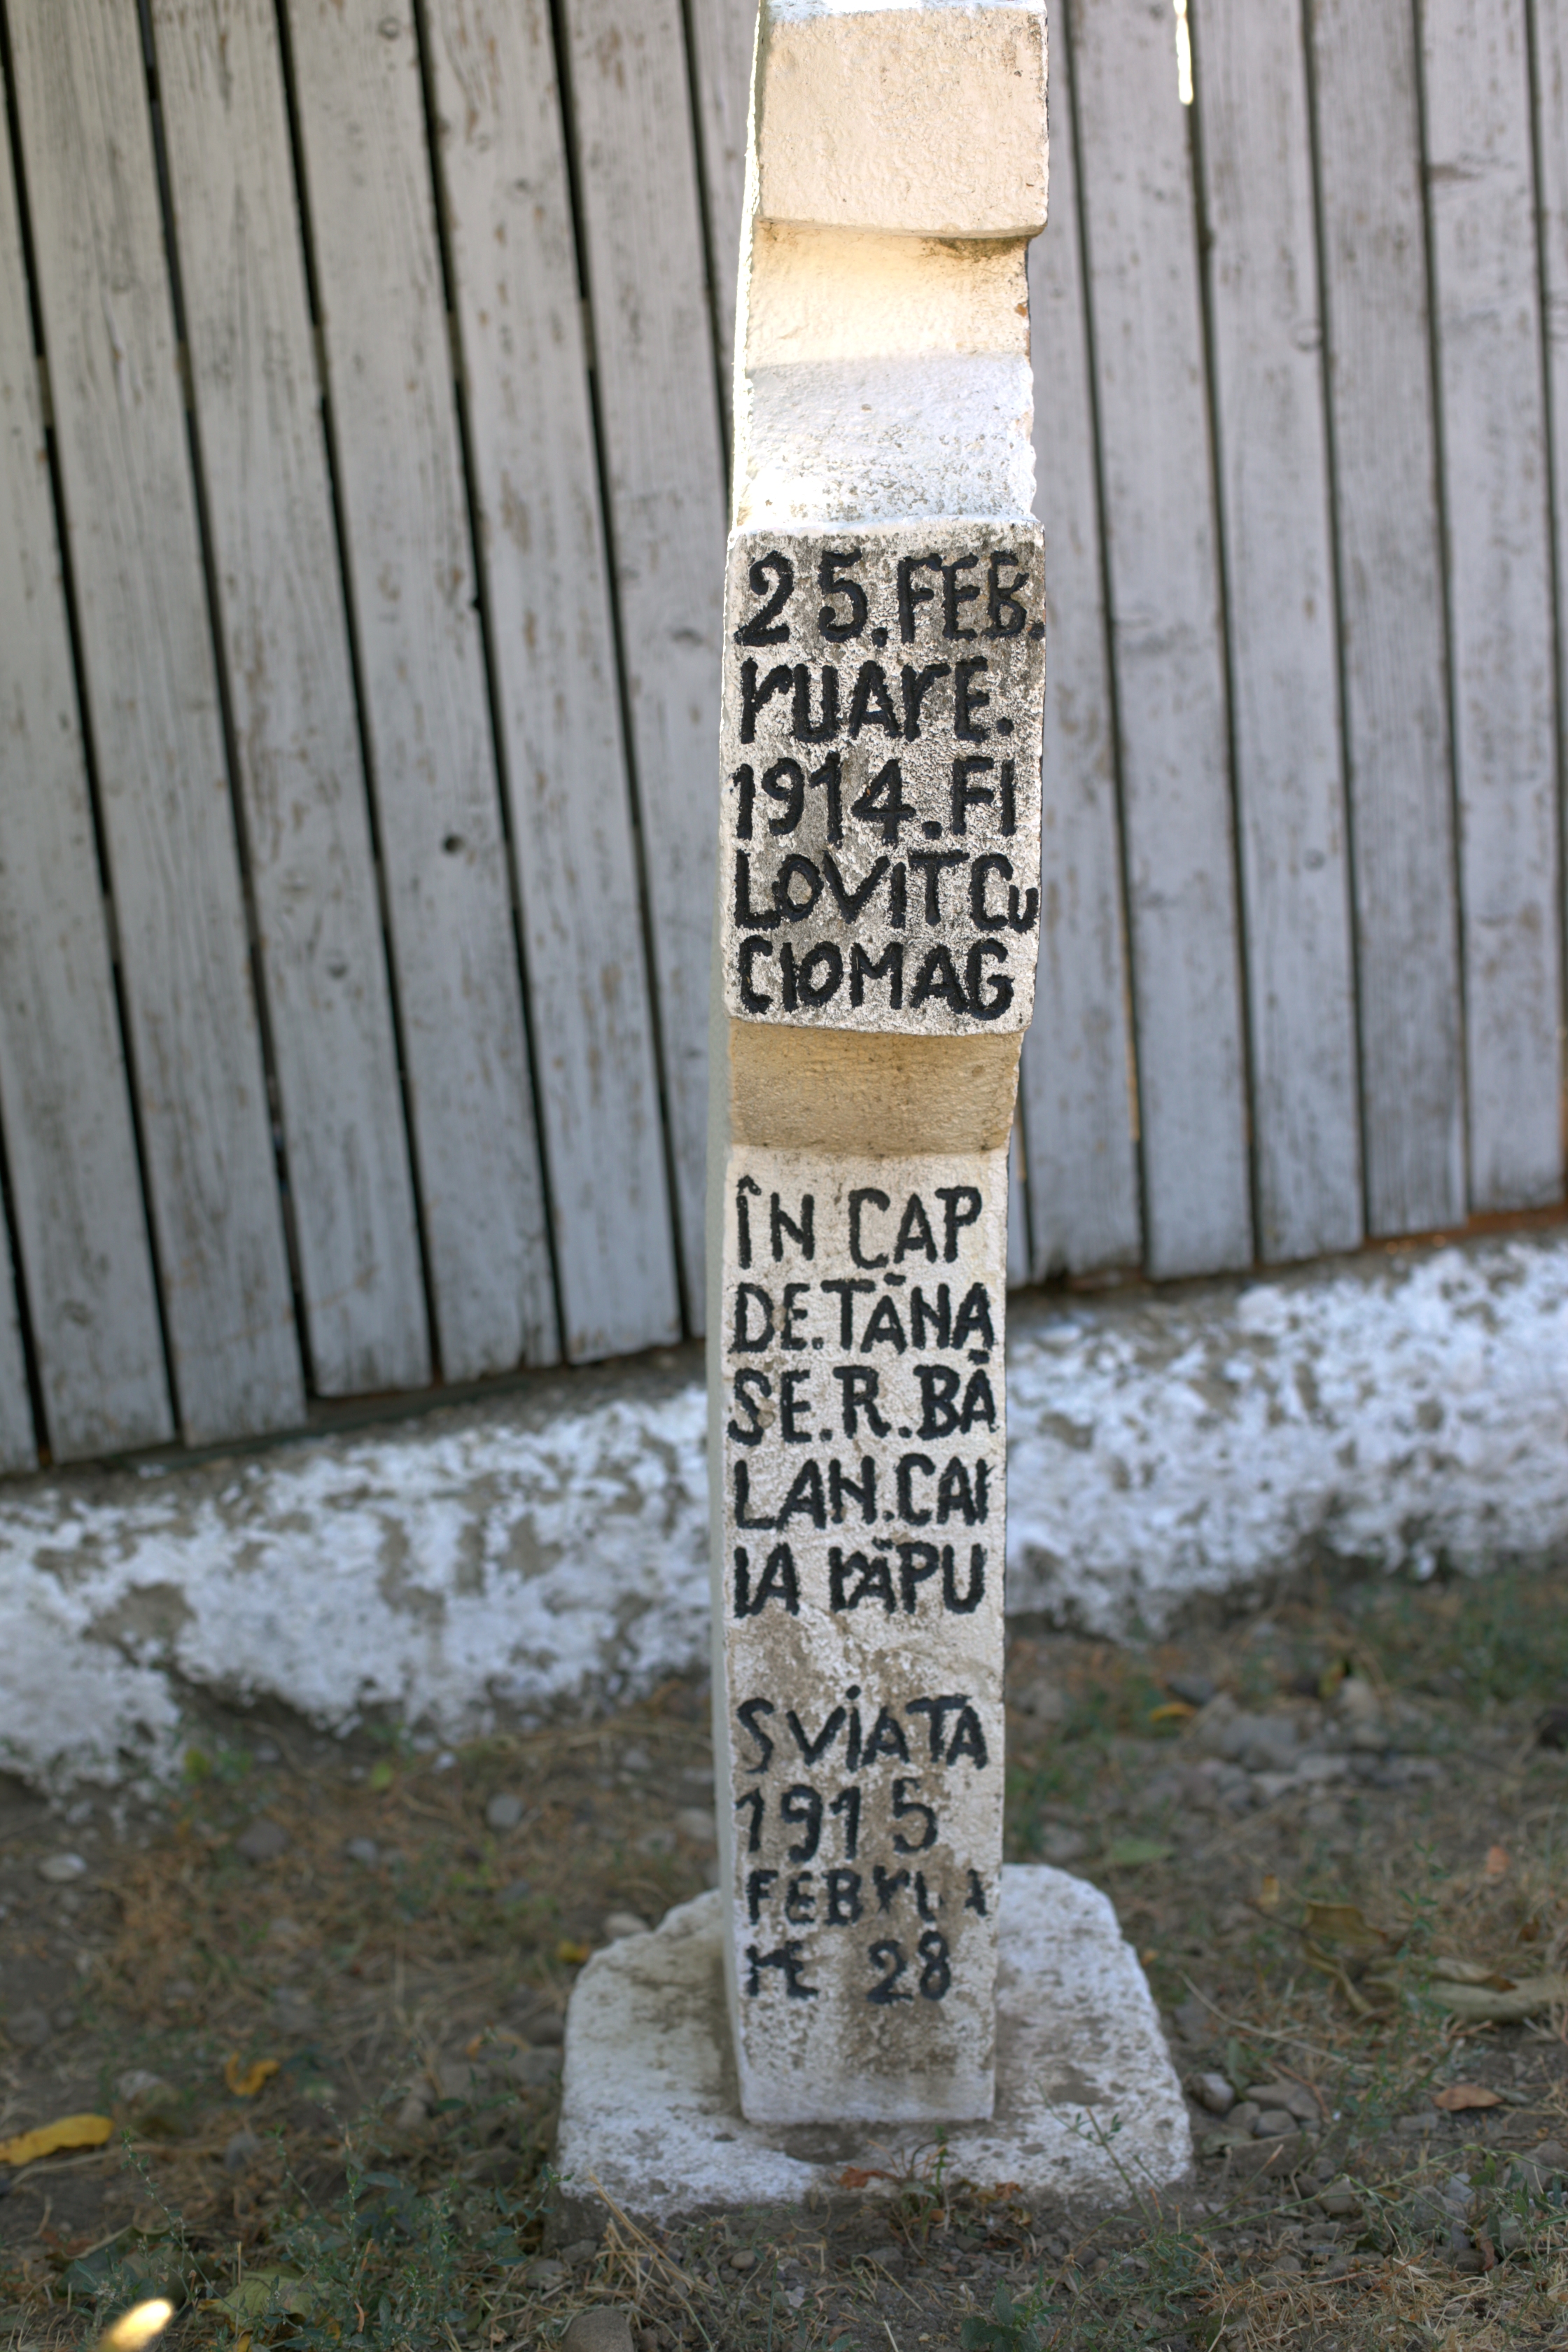 25.FEB.
rUArE.
1914.FI
LOVIT Cu
CIOMAG
ÎN CAP
DE.TĀNA
SE.R.BĀ
LAN.CAI
IA rāPU
S ViATA
1915
FEBrUA
rE 28